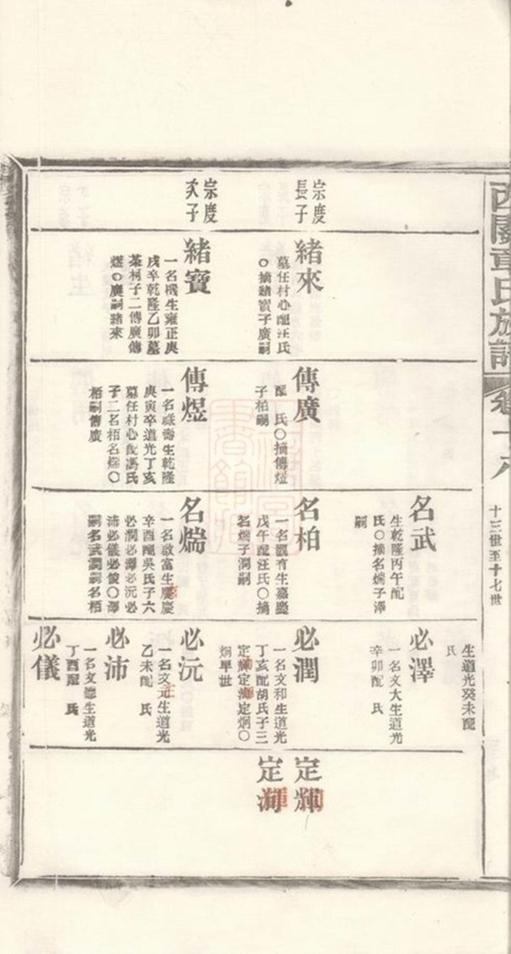 西關章氏族譜
卷十六
十三世至十七世
宗度
長子
宗度
次子
緒來
墓任村心配汪氏
○擒緒寶子廣嗣
緒寶
一名璣生雍正庚
戌卒乾隆乙卯墓
茶柯子二傳廣傳
煜○廣嗣緒來
傳廣
配 氏○擒傳煜
子柏嗣
傳煜
一名啟壽生乾隆
庚寅卒道光丁亥
墓任村心配馮氏
子二名栢名煓○
栢嗣傳廣
名武
生乾隆丙午配
氏○擒名煓子澤
名柏
一名觀有生嘉慶
戊午配汪氏○擒
名煓子潤嗣
名煓
一名啟富生嘉慶
辛酉配吳氏子六
必潤必澤必沅必
沛必儀必俊○澤
嗣名武潤嗣名栢
生道光癸未配
氏
必澤
一名文大生道光
辛卯配 氏
必潤
一名文和生道光
丁亥配胡氏子三
定輝定洵定炯○
炯早世
必沅
一名文元生道光
乙未配 氏
必沛
一名文德生道光
丁酉配 氏
必儀
定輝
定洵